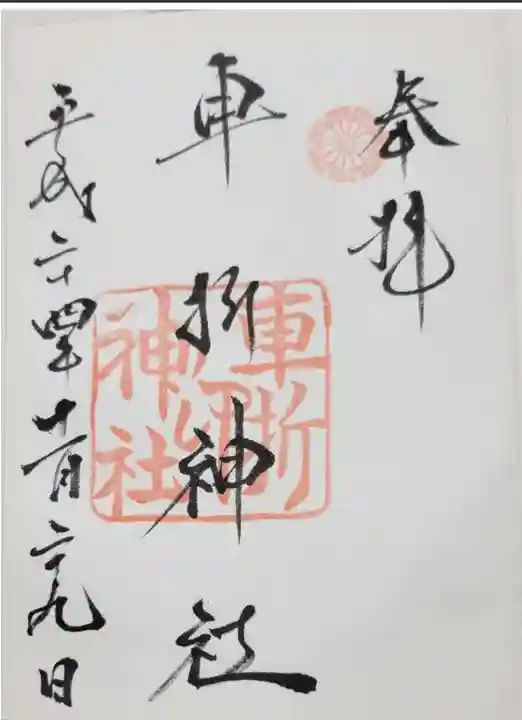 奉拝
車折神社
車折
神社
平成二十四年十一月二十九日